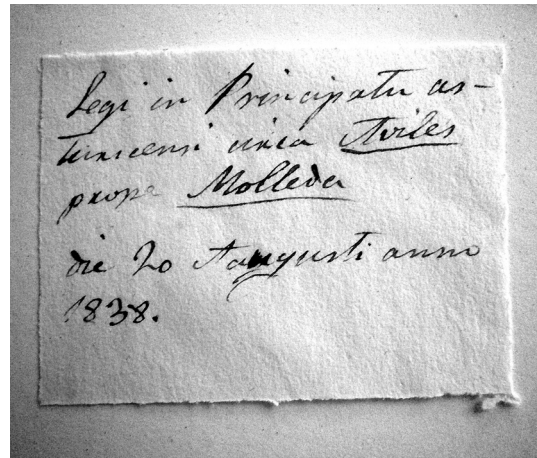 Legi in Principatu as-
turicensi circa Aviles
prope Molleda
die 20 Augusti anno
1838.